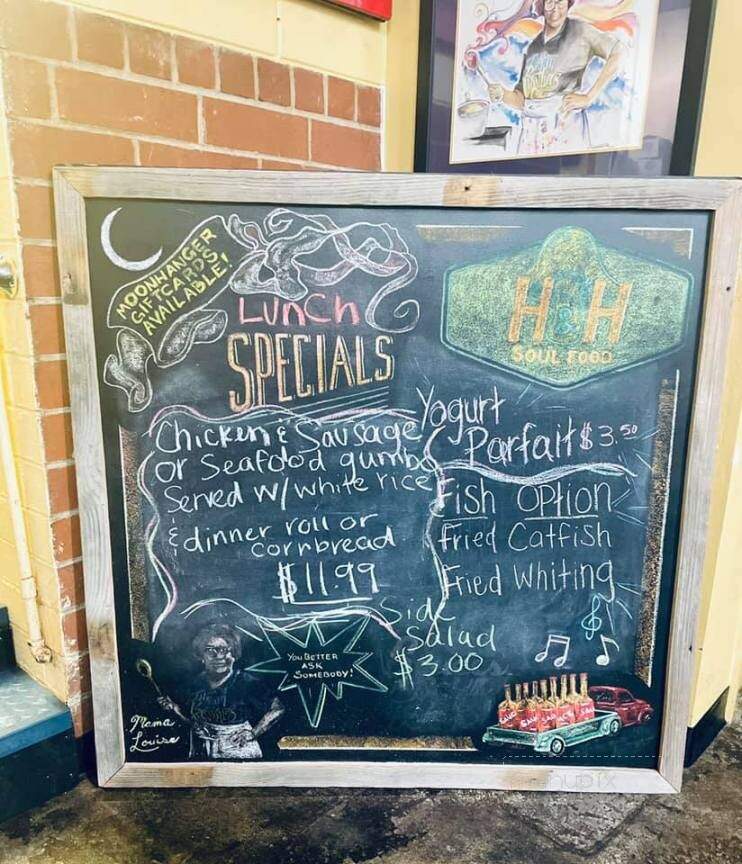 MOONHANGER
GIFTCARDS
AVAILABLE!
LUNCH
SPECIALS
H&H
SOUL FOOD
Chicken & Sausage
or Seafood gumbo
Served w/white rice
& dinner roll or
cornbread
$11.99
Yogurt
Parfait $3.50
Fish Option
Fried Catfish
Fried Whiting
Side
Salad
$3.00
YOU BETTER
ASK
SOMEBODY!
Mama
Louise